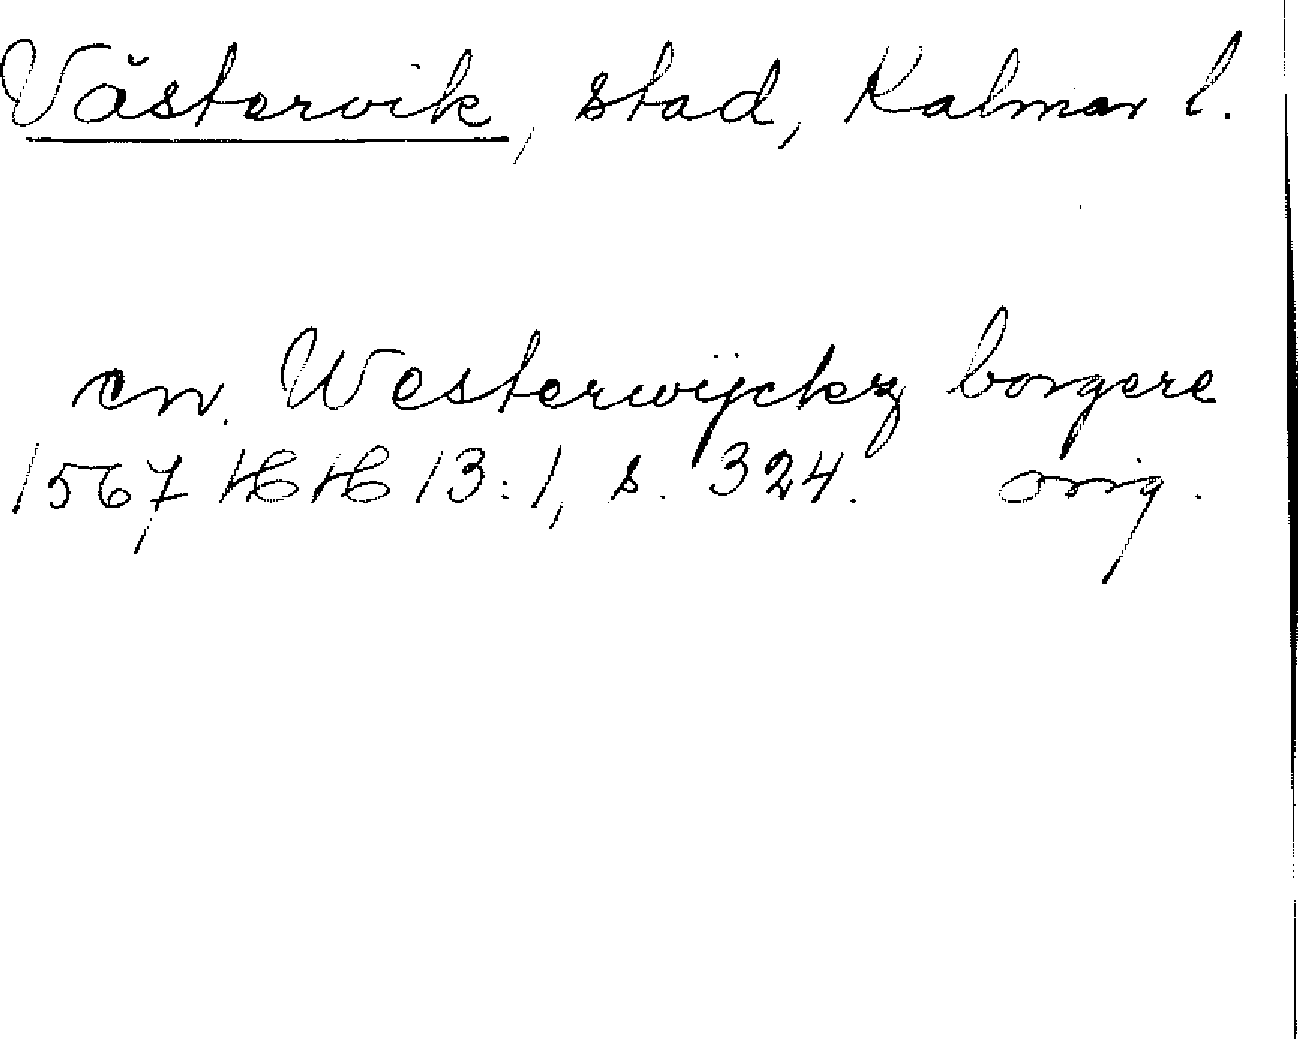 Västervik, stad, Kalmar l.
en Westerwijckz borgere
1567 HH 13:1, s. 324. orig.